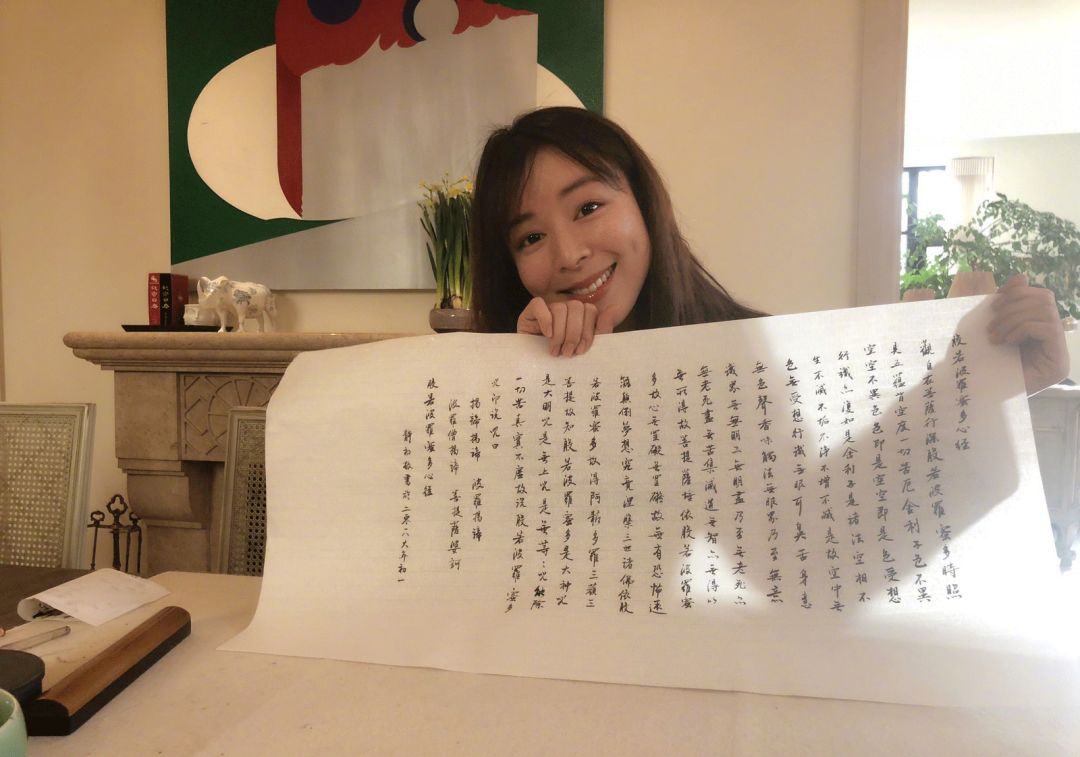 般若波羅蜜多心經
觀自在菩薩行深般若波羅蜜多時照
見五蘊皆空度一切苦厄舍利子色不異
空空不異色色即是空空即是色受想
行識亦復如是舍利子是諸法空相不
生不滅不垢不淨不增不減是故空中無
色無受想行識無眼耳鼻舌身意
無色聲香味觸法無眼界乃至無意
識界無無明亦無明盡乃至無老死亦
無老死盡無苦集滅道無智亦無得以
無所得故菩提薩埵依般若波羅蜜
多故心無罣礙無罣礙故無有恐怖遠
離顛倒夢想究竟涅槃三世諸佛依般
若波羅蜜多故得阿耨多羅三藐三
菩提故知般若波羅蜜多是大神咒
是大明咒是無上咒是無等:咒能除
一切苦真實不虛故說般若波羅蜜多
咒即說咒曰
揭諦揭諦 波羅揭諦
波羅僧揭諦 菩提薩婆訶
般若波羅蜜多心經
靜初敬書於二零一八大年初一
故宮日曆
故宮日曆